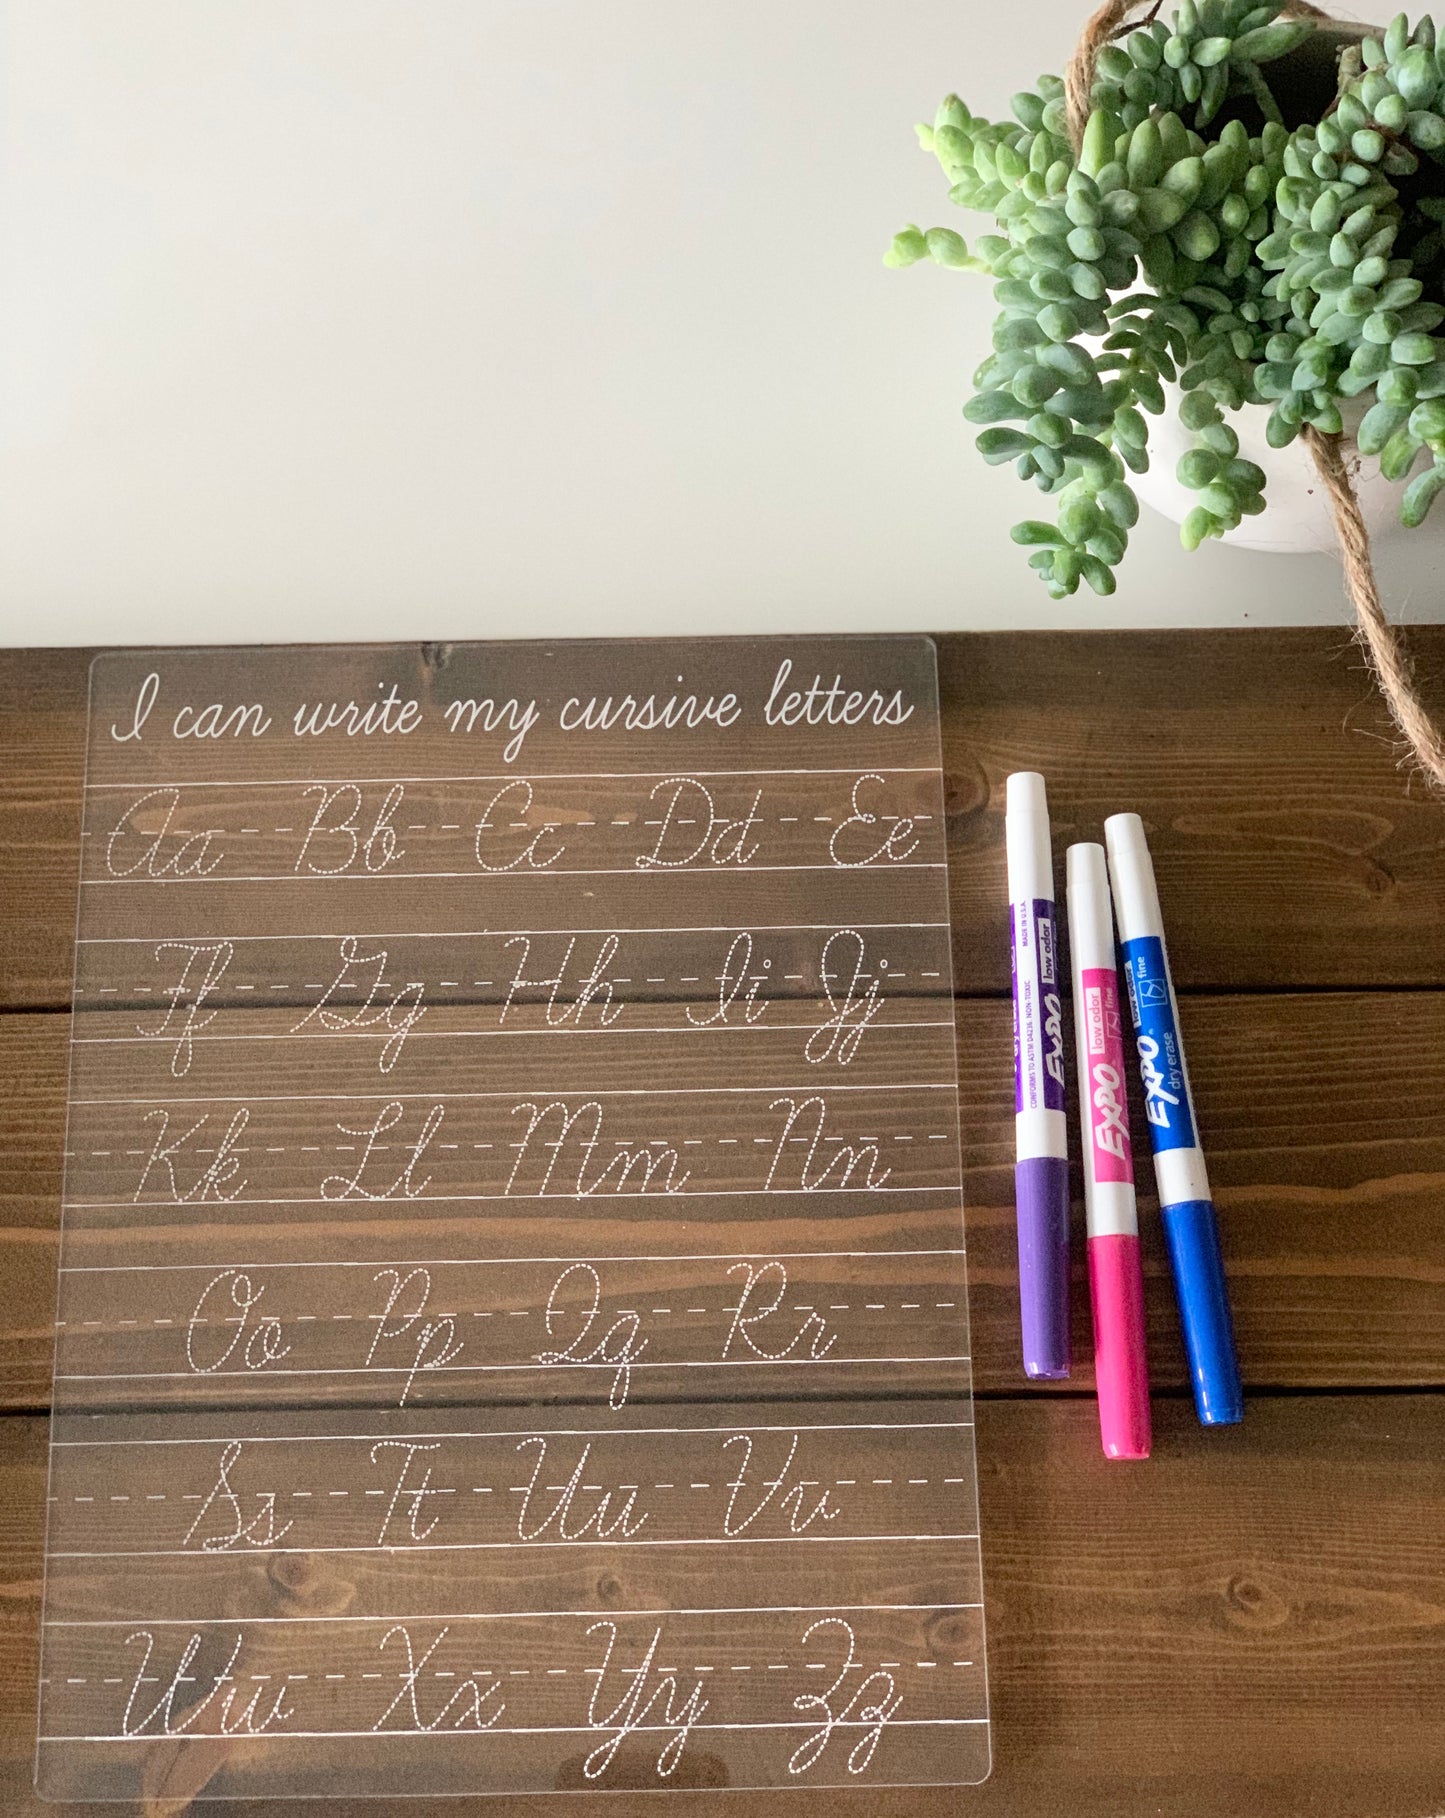 I can write my cursive letters
Aa Bb Cc Dd Ee
Ff Gg Hh Ii Jj
Kk Ll Mm Nn
Oo Pp Qq Rr
Ss Tt Uu Vv
Ww Xx Yy Zz
EXPO low odor
MADE IN U.S.A.
CONFORMS TO ASTM D4236 NON-TOXIC
EXPO low odor
fine
EXPO low odor
dry erase fine